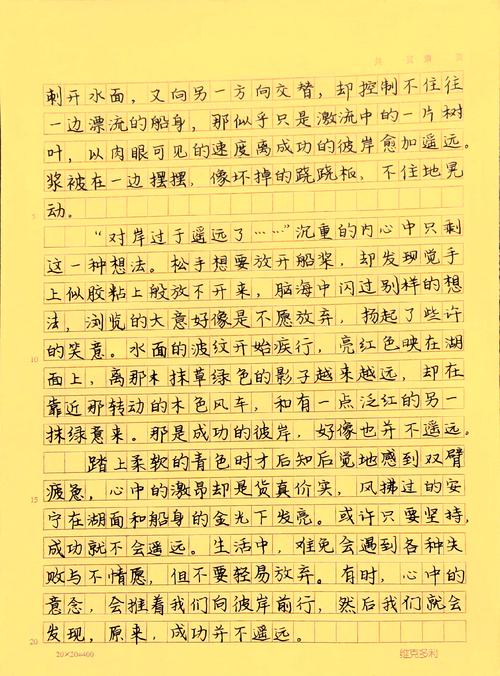 刺开水面，又向另一方向交替，却控制不住往
一边漂流的船身，那似乎只是激流中的一片树
叶，以肉眼可见的速度离成功的彼岸愈加遥远。
浆被在一边摆摆，像坏掉的跷跷板，不住地晃
动。
5
“对岸过于遥远了……”沉重的内心中只剩
这一种想法。松手想要放开船桨，却发现觉手
上似胶粘上般放不开来，脑海中闪过别样的想
法，浏览的大意好像是不愿放弃，扬起了些许
的笑意。水面的波纹开始疾行，亮红色映在湖
10
面上，离那木抹草绿色的影子越来越远，却在
靠近那转动的木色风车，和有一点泛红的另一
抹绿意来。那是成功的彼岸，好像也并不遥远。
踏上柔软的青色时才后知后觉地感到双臂
疲惫，心中的激昂却是货真价实，风拂过的安
15
宁在湖面和船身的金光下发亮。或许只要坚持，
成功就不会遥远。生活中，难免会遇到各种失
败与不情愿，但不要轻易放弃。有时，心中的
意念，会推着我们向彼岸前行，然后我们就会
发现，原来，成功并不遥远。
20
20×20=400
维克多利